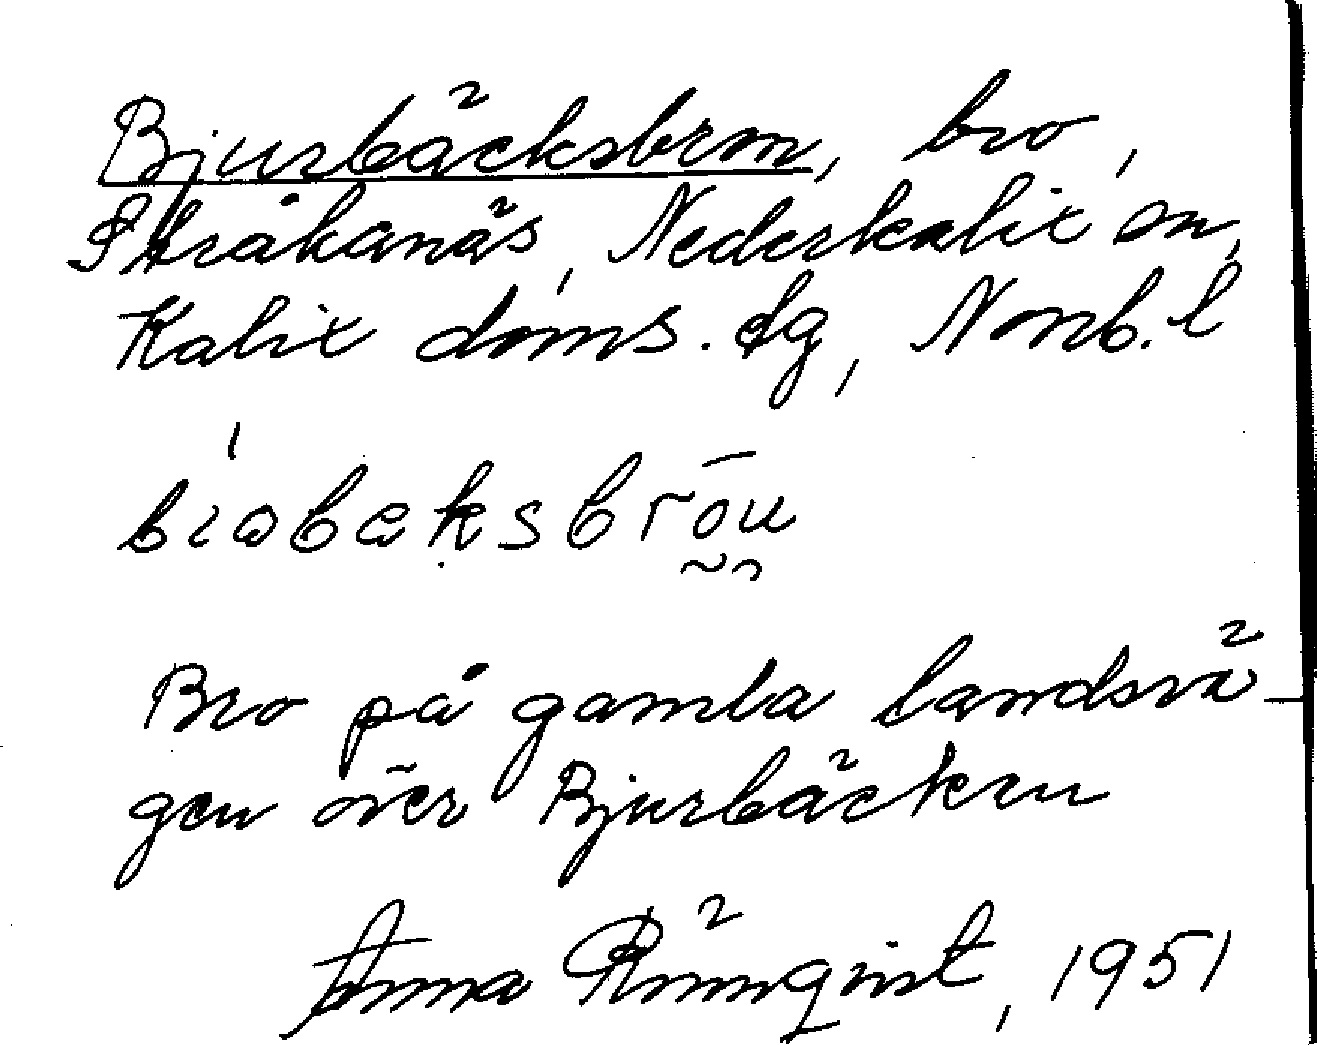 Bjurbäcksbron, bro,
Stråkanäs, Nederkalix sn,
Kalix doms. dg, Norrb. l
Bro på gamla landsvä-
gen över Bjurbäcken
Anna Rönnqvist, 1951